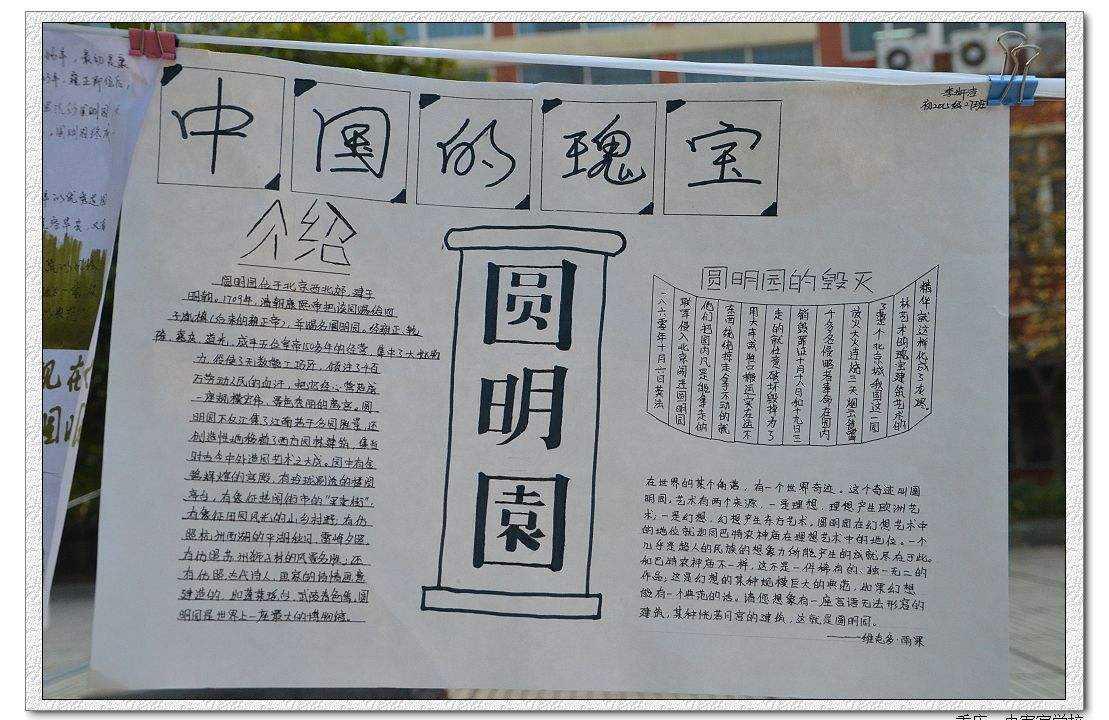 中国的瑰宝
初2015级27班
介绍
圆明园位于北京西北郊，建于
明朝。1709年，清朝康熙帝把该园赐给四
子胤禛（后来的雍正帝），并赐名圆明园。经雍正、乾
隆、嘉庆、道光、咸丰五位皇帝150多年的经营，集中了大批物
力，役使了无数能工巧匠，倾注了千百
万劳动人民的血汗，把它精心营造成
一座规模宏伟、景色秀丽的离宫。圆
明园不仅汇集了江南若干名园胜景，还
创造性地移植了西方园林建筑，集当
时古今中外造园艺术之大成。园中有金
碧辉煌的宫殿，有玲珑剔透的楼阁
亭台，有象征热闹街市的“买卖街”，
有象征田园风光的山乡村野，有仿
照杭州西湖的平湖秋月、雷峰夕照，
有仿照苏州狮子林的风景名胜，还
有仿照古代诗人、画家的诗情画意
建造的，如蓬莱瑶台、武陵春色等。圆
明园是世界上一座最大的博物馆。
圆明園
圆明园的毁灭
一八六零年十月六日英法
联军侵入北京闯进圆明园
他们把园内凡是能拿走的
东西统统掠走拿不动的就
用大车或牲口搬运实在运不
走的就任意破坏毁掉为了
销毁罪证十月十八日和十九日三
千多名侵略者奉命在园内
放火大火连烧三天烟云笼罩
了整个北京城我国这一园
林艺术的瑰宝建筑艺术的
精华就这样化成了灰烬。
在世界的某个角落，有一个世界奇迹。这个奇迹叫圆
明园。艺术有两个来源，一是理想，理想产生欧洲艺
术；一是幻想，幻想产生东方艺术。圆明园在幻想艺术中
的地位就如同巴特农神庙在理想艺术中的地位。一个
几乎是超人的民族的想象力所能产生的成就尽在于此。
和巴特农神庙不一样，这不是一件稀有的、独一无二的
作品；这是幻想的某种规模巨大的典范，如果幻想
能有一个典范的话。请您想象有一座言语无法形容的
建筑，某种恍若月宫的建筑，这就是圆明园。
——维克多·雨果